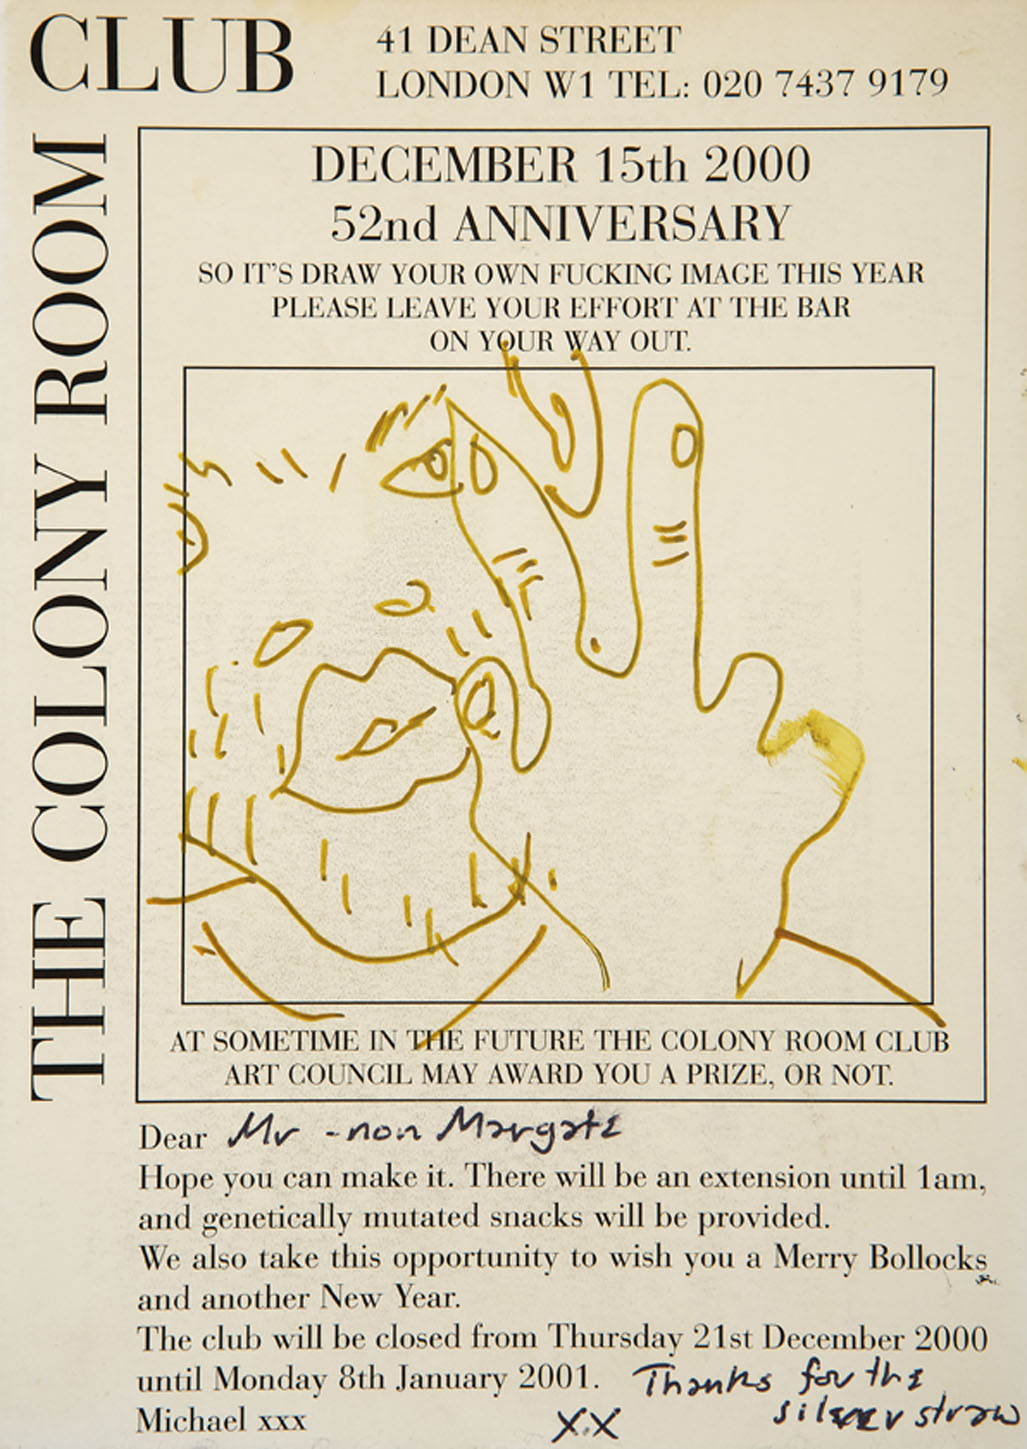 THE COLONY ROOM CLUB
41 DEAN STREET
LONDON W1 TEL: 020 7437 9179
DECEMBER 15th 2000
52nd ANNIVERSARY
SO IT'S DRAW YOUR OWN FUCKING IMAGE THIS YEAR
PLEASE LEAVE YOUR EFFORT AT THE BAR
ON YOUR WAY OUT.
AT SOMETIME IN THE FUTURE THE COLONY ROOM CLUB
ART COUNCIL MAY AWARD YOU A PRIZE, OR NOT.
Dear Mr -non Margate
Hope you can make it. There will be an extension until 1am,
and genetically mutated snacks will be provided.
We also take this opportunity to wish you a Merry Bollocks
and another New Year.
The club will be closed from Thursday 21st December 2000
until Monday 8th January 2001. Thanks for the
Michael xxx XX silver straw